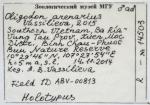 Зоологический музей МГУ
Oligodon arenarius
Vassilieva, 2015
Southern Vietnam, Ba Ria-
Vung Tau Prov., Xuyen Moc
Distr., Binh Chau - Phuoc
Buu Nature Reserve
14.11.2014
Leg. A.B. Vassilieva
Field ID ABV-00813
Holotypus